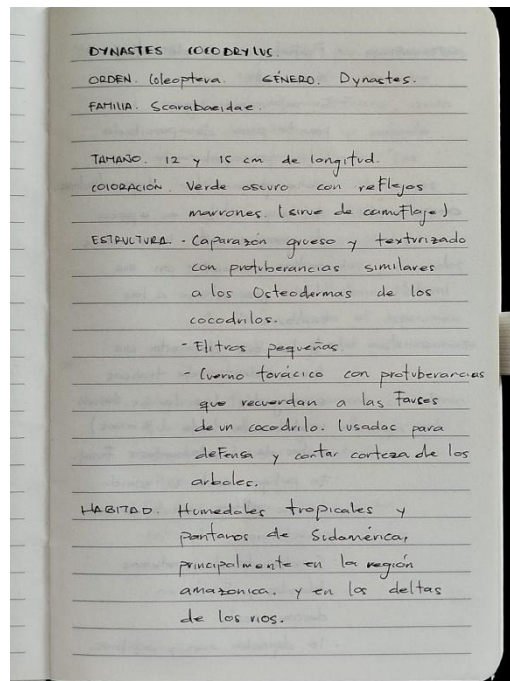 DYNASTES COCODRYLUS.
ORDEN. Coleoptera. GÉNERO. Dynastes.
FAMILIA. Scarabaeidae.
TAMAÑO. 12 y 15 cm de longitud.
COLORACIÓN. Verde oscuro con reflejos
marrones. (sirve de camuflaje)
ESTRUCTURA. - Caparazón grueso y texturizado
con protuberancias similares
a los Osteodermas de los
cocodrilos.
- Elitros pequeñas
- Cuerno torácico con protuberancias
que recuerdan a las Fauses
de un cocodrilo. (usadas para
defensa y cortar corteza de los
arboles.
HABITAD. Humedales tropicales y
pantanos de Sudamérica,
principalmente en la región
amazonica. y en los deltas
de los rios.